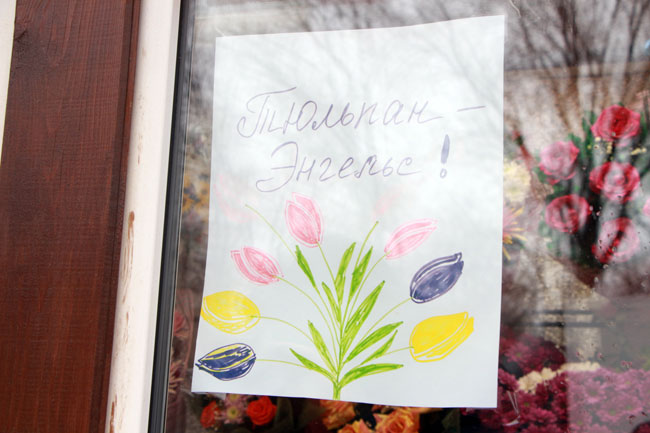 Тюльпан -
Энгельс!